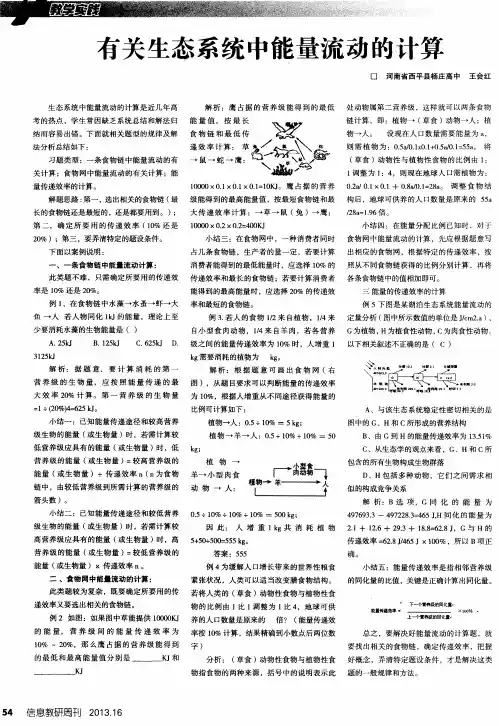 教学实践
有关生态系统中能量流动的计算
□ 河南省西平县杨庄高中 王会红
生态系统中能量流动的计算是近几年高
考的热点，学生常因缺乏系统总结和解法归
纳而容易出错。下面就相关题型的规律及解
法分析总结如下：
习题类型：一条食物链中能量流动的有
关计算；食物网中能量流动的有关计算；能
量传递效率的计算。
解题思路：第一，选出相关的食物链（最
长的食物链还是最短的，还是都要用到。）；
第二，确定所要用的传递效率（10% 还是
20%）；第三，要弄清特定的题设条件。
下面以案例说明：
一、一条食物链中能量流动计算：
此类题不难，只需确定所要用的传递效
率是 10% 还是 20%。
例 1、在食物链中水藻→水蚤→虾→大
鱼 →人 若人物同化 1kJ 的能量，理论上至
少要消耗水藻的生物能量是（ ）
A. 25kJ B. 125kJ C. 625kJ D.
3125kJ
解析：据题意，要计算消耗的第一
营养级的生物量，应按照能量传递的最
大效率 20% 计算。第一营养级的生物量
=1÷(20%)4=625 kJ。
小结一：已知能量传递途径和较高营养
级生物的能量（或生物量）时，若需计算较
低营养级应具有的能量（或生物量）时，低
营养级的能量（或生物量）= 较高营养级的
能量（或生物量）÷ 传递效率 n（n 为食物
链中，由较低营养级到所需计算的营养级的
箭头数）。
小结二：已知能量传递途径和较低营养
级生物的能量（或生物量）时，若需计算较
高营养级应具有的能量（或生物量）时，高
营养级的能量（或生物量）= 较低营养级的
能量（或生物量）× 传递效率 n 。
二、食物网中能量流动的计算：
此类题较为复杂，既要确定所要用的传
递效率又要选出相关的食物链。
例 2 如图：如果图中草能提供 10000KJ
的能量，营养级间的能量传递效率为
10% ~ 20%，那么鹰占据的营养级能得到
的最低和最高能量值分别是 ______KJ 和
______KJ
解析：鹰占据的营养级能得的最低
能量值，按最长
食物链和最低传
递效率计算：草
→鼠→蛇→鹰：
10000 x 0.1 x 0.1 x 0.1=10KJ。鹰占据的营养
级能得到的最高能量值，按最短食物链和最
大传递效率计算：→草→鼠（兔）→鹰：
10000 x 0.2 x 0.2=400KJ
小结三：在食物网中，一种消费者同时
占几条食物链，生产者的量一定，若要计算
消费者能得到的最低能量时，应选择 10% 的
传递效率和最长的食物链；若要计算消费者
能得到的最高能量时，应选择 20% 的传递效
率和最短的食物链。
例 3. 若人的食物 1/2 来自植物，1/4 来
自小型食肉动物，1/4 来自羊肉，若各营养
级之间的能量传递效率为 10% 时，人增重 1
kg 需要消耗的植物为 kg。
解析：根据题意可画出食物网（右
图），从题目要求可以判断能量的传递效率
为 10%，根据人增重从不同途径获得能量的
比例可计算如下：
植物→人：0.5 ÷ 10% = 5 kg；
植物→羊→人：0.5 ÷ 10% ÷ 10% = 50
kg；
植物→
羊→小型肉食
动物→人：
小型食
肉动物
植物 羊 人
0.5 ÷ 10% ÷ 10% ÷ 10% = 500 kg；
因此：人增重 1 kg 共消耗植物
5+50+500=555 kg。
答案：555
例 4 为缓解人口增长带来的世界性粮食
紧张状况，人类可以适当改变膳食物结构。
若将人类的（草食）动物性食物与植物性食
物的比例由 1 比 1 调整为 1 比 4，地球可供
养的人口数量是原来的 倍？（能量传递效
率按 10% 计算，结果精确到小数点后两位数
字）
分析：（草食）动物性食物与植物性食
物指食物的两种来源，括号中的说明表示此
处动物属第二营养级，这样就可以两条食物
链计算，即：植物→（草食）动物→人；植
物→人。 设现在人口数量需要能量为 a，
则需植物为：0.5a/0.1x0.1+0.5a/0.1=55a。将
（草食）动物性与植物性食物的比例由 1：
1 调整为 1：4，则现在地球人口需植物为：
0.2a/ 0.1 x 0.1 + 0.8a/0.1=28a。调整食物结
构后，地球可供养的人口数量是原来的 55a
/28a=1.96 倍。
小结四：在能量分配比例已知时，对于
食物网中能量流动的计算，先应根据题意写
出相应的食物网，根据特定的传递效率，按
照从不同食物链获得的比例分别计算，再将
各条食物链中的值相加即可。
三 能量的传递效率的计算
例 5 下图是某湖泊生态系统能量流动的
定量分析（图中所示数值的单位是 J/cm2.a）、
G 为植物，H 为植食性动物，C 为肉食性动物，
以下相关叙述不正确的是（ C ）
A、与该生态系统稳定性密切相关的是
图中的 G、H 和 C 所形成的营养结构
B、由 G 到 H 的能量传递效率为 13.51%
C、从生态学的观点来看，G、H 和 C 所
包含的所有生物构成生物群落
D、H 包括多种动物，它们之间需求相
似的构成竞争关系
解析：B 选项，G 同化的能量为
497693.3 － 497228.3=465 J,H 同化的能量为
2.1 + 12.6 + 29.3 + 18.8=62.8 J，G 与 H 的
传递效率 =62.8 J/465 J x 100%，所以 B 项正
确。
小结五：能量传递效率是指相邻营养级
的同化量的比值，关键是正确计算出同化量。
能量传递效率 = 下一个营养级的同化量 / 上一个营养级的同化量 ×100%
总之，要解决好能量流动的计算题，就
要找出相关的食物链，确定传递效率，把握
好概念，弄清特定题设条件，才是解决这类
题的一般规律和方法。
54 信息教研周刊 2013.16